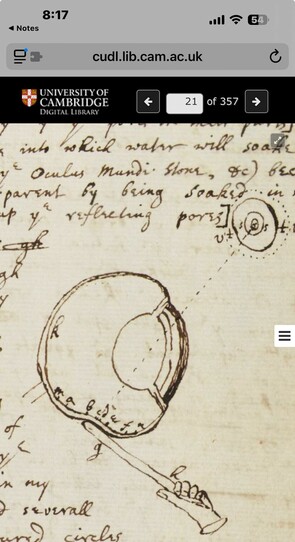 8:17
54
◂ Notes
cudl.lib.cam.ac.uk
UNIVERSITY OF
CAMBRIDGE
DIGITAL LIBRARY
21 of 357
into which water will soake
yᵉ Oculus Mundi Stone, &c) bec
parent by being soaked in
up yᵉ reflecting pores]
gh
gh
y
h
g
h
of
yᵉ
in my
d severall
ured circles